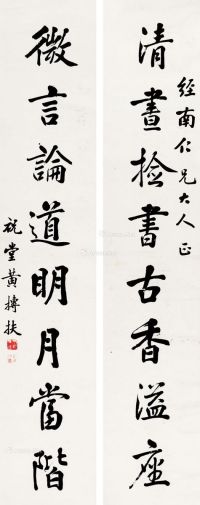 經南仁兄大人正
清晝撿書古香溢座
微言論道明月當階
祝堂黃摶扶